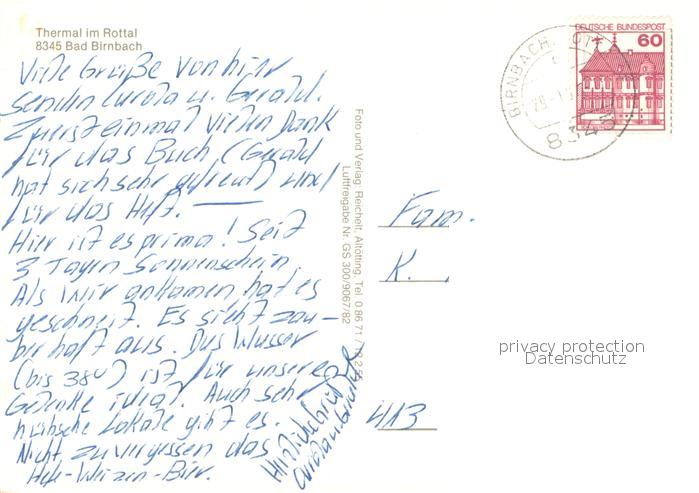 Thermal im Rottal
8345 Bad Birnbach
Viele Grüße von hier
senden Carola u. Gerald.
Zuerst einmal vielen Dank
für das Buch, (Gerald
hat sich sehr gefreut) und
für das Heft. —
Hier ist es prima! Seit
3 Tagen Sonnenschein.
Als wir ankamen, hat es
geschneit. Es sieht zau-
berhaft aus. Das Wasser
(bis 38°) ist für unsere
Gelenke ideal. Auch sehr
hübsche Lokale gibt es.
Nicht zu vergessen das
Hefe-Weizen-Bier.
Herzliche Grüße
Carola u. Gerald
Foto und Verlag: Reichelt, Altötting, Tel. 0 86 71 /
Luftfreigabe Nr. GS 300/9067/82
DEUTSCHE BUNDESPOST
60
BIRNBACH, ROTT
8345
Fam.
K. .
413
privacy protection
Datenschutz